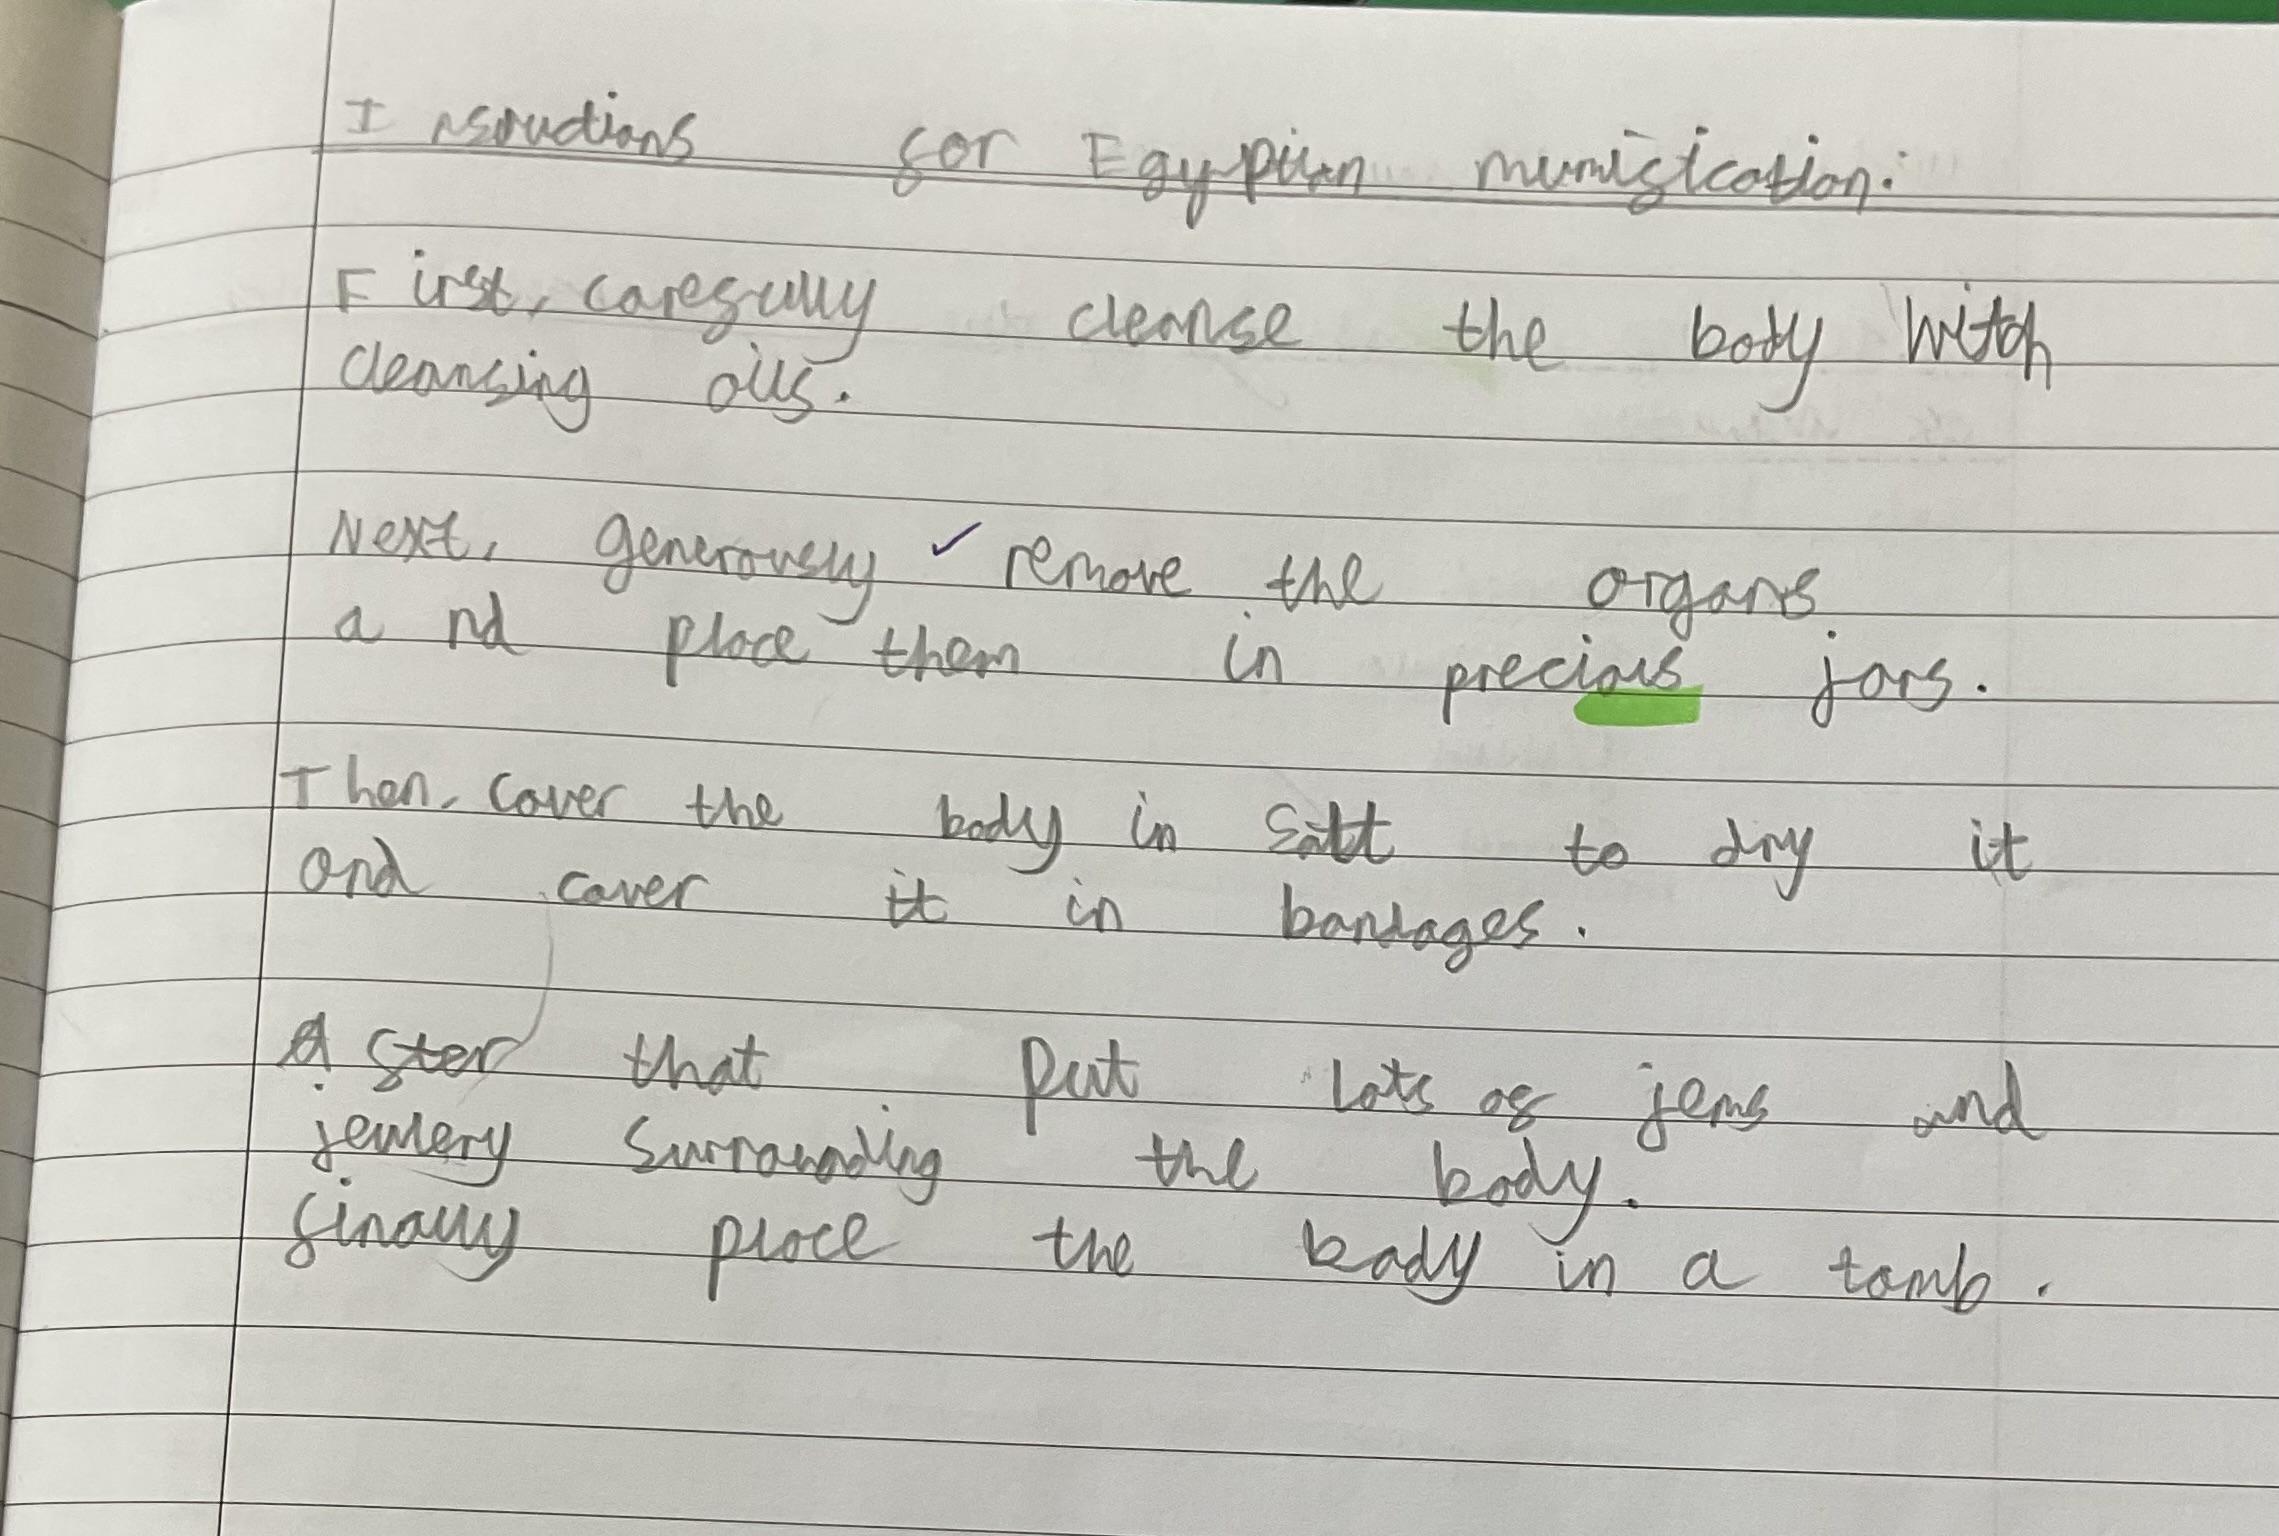 Insructions for Egyptian mumification:
First, carefully cleanse the body with
cleansing oils.
Next, generously remove the organs
and place them in precious jars.
Then, cover the body in salt to dry it
and cover it in bandages.
After that put lots of jems and
jewlery surrounding the body.
finally place the body in a tomb.